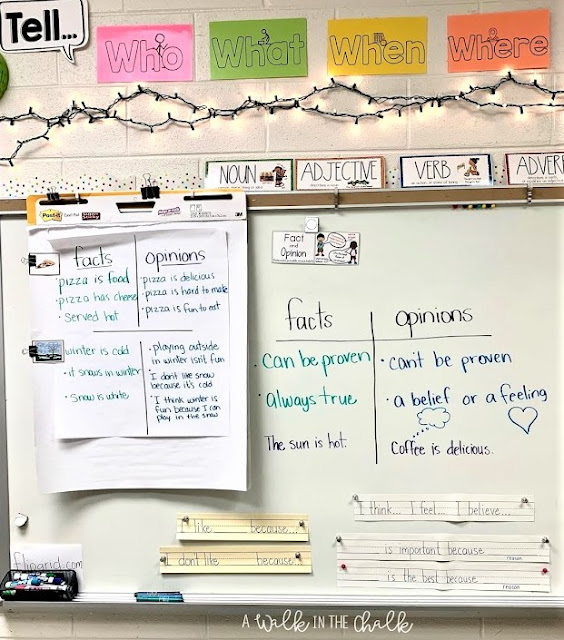 Tell...
Who
What
When
Where
NOUN
ADJECTIVE
VERB
ADVERB
Post-it
3M
Fact
and
Opinion
facts
opinions
• pizza is food
• pizza has cheese
• Served hot
• pizza is delicious
• pizza is hard to make
• pizza is fun to eat
• winter is cold
• it snows in winter
• Snow is white
• playing outside
in winter isn't fun
• I don't like snow
because it's cold
• I think winter is
fun because I can
play in the snow
facts
opinions
• can be proven
• always true
The sun is hot.
• can't be proven
• a belief or a feeling
Coffee is delicious.
I think... I feel... I believe...
I like because...
I don't like because...
is important because
reason
is the best because
reason
Flipgrid.com
A WALK IN THE Chalk